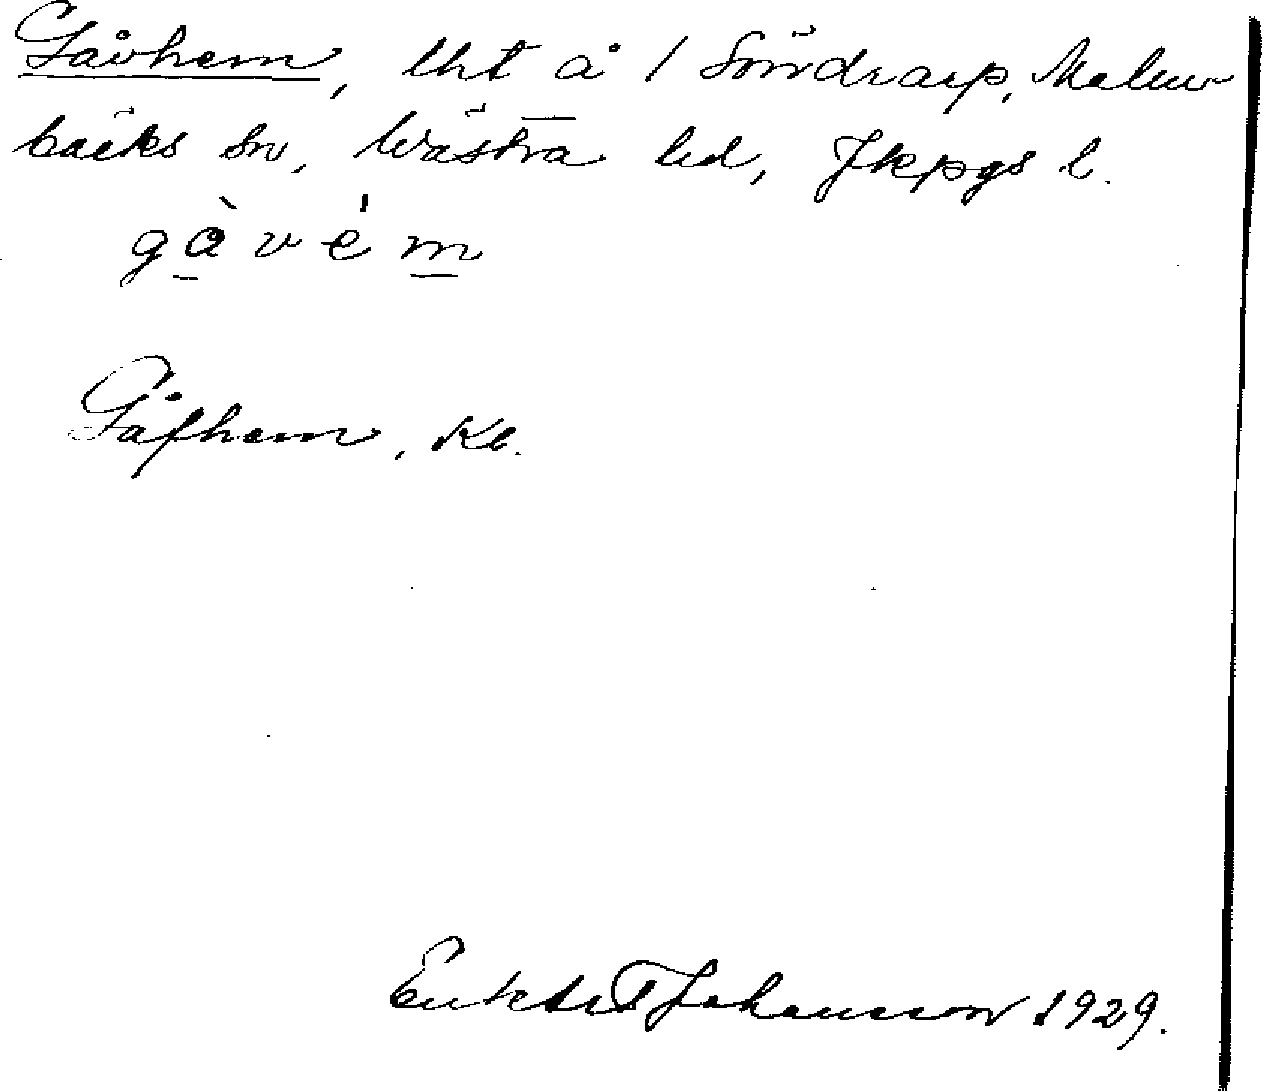 Gåvhem, lht å 1 Söndrarp, Malm-
bäcks sn, Västra hd, Jkpgs l.
gàvém
Gåfhem, Kl.
Johansson 1929.